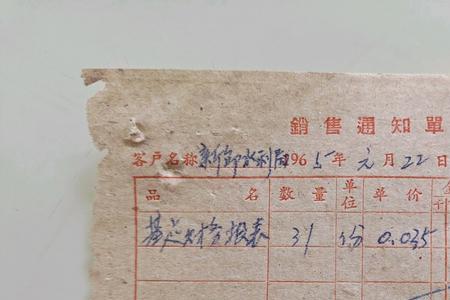 銷售通知單
客户名称 新鄉水利局 1965年元月22日
品名 数量 单位 单价 金
基足财给报表 31 份 0.035